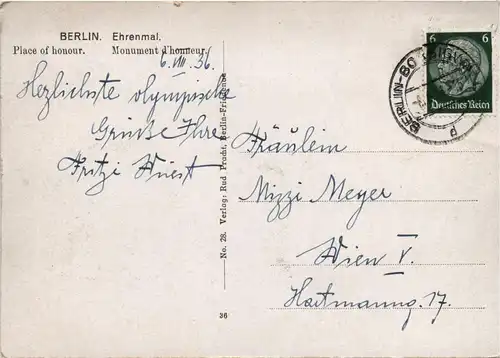 BERLIN. Ehrenmal.
Place of honour. Monument d'honneur.
6. VIII. 36.
Herzlichste olympische
Grüße Ihre
Fritzi
No. 28. Verlag: Rud Pracht, Berlin-Friedenau
36
6 6
Deutsches Reich
BERLIN-
Fräulein
Mizzi Meyer
Wien V.
Hartmanng. 17.